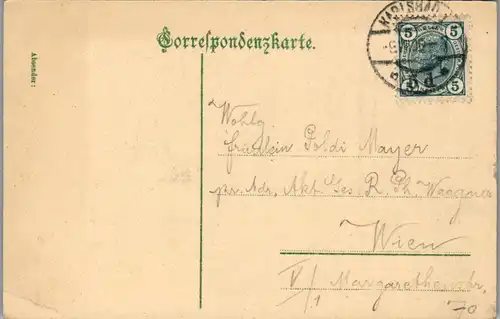 Correspondenzkarte.
Absender:
KARLSBAD
5 5
5 5
Wohlg
Fräulein Poldi Mayer
pr. Adr. Akt. Ges. R. Ph. Waagner
Wien
V/1 Margarethenstr.
70